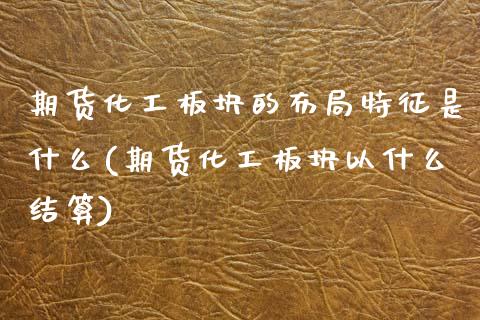 期货化工板块的布局特征是
什么(期货化工板块以什么
结算)